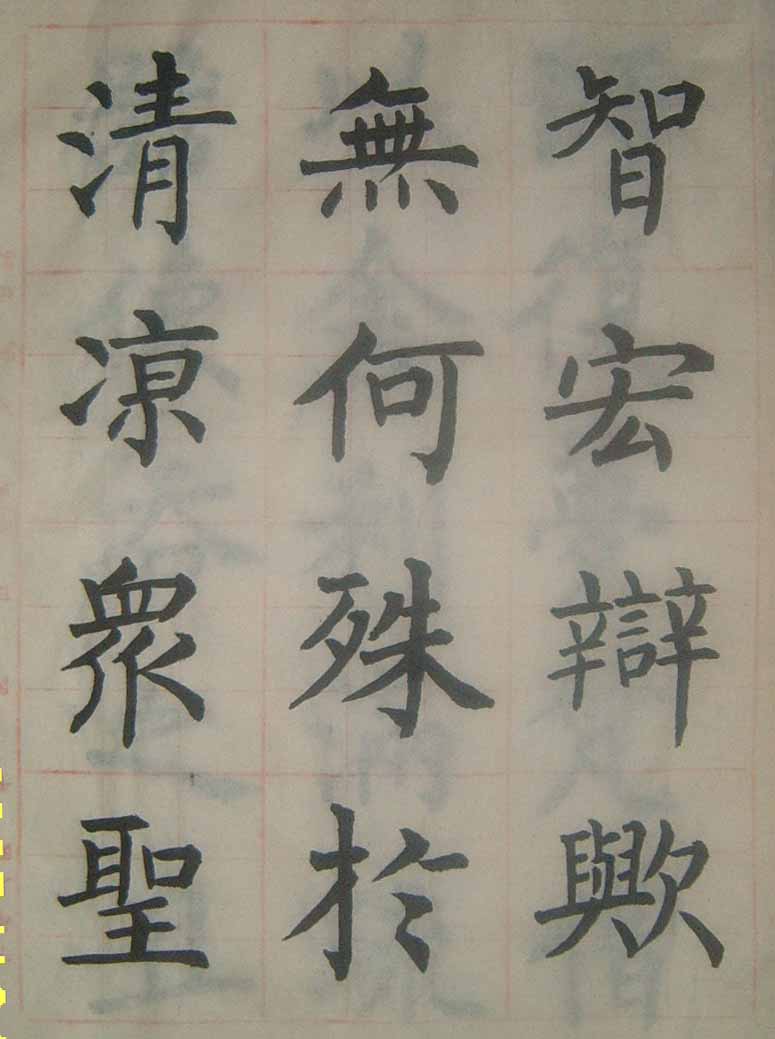 智宏辯歟
無何殊於
清凉衆聖